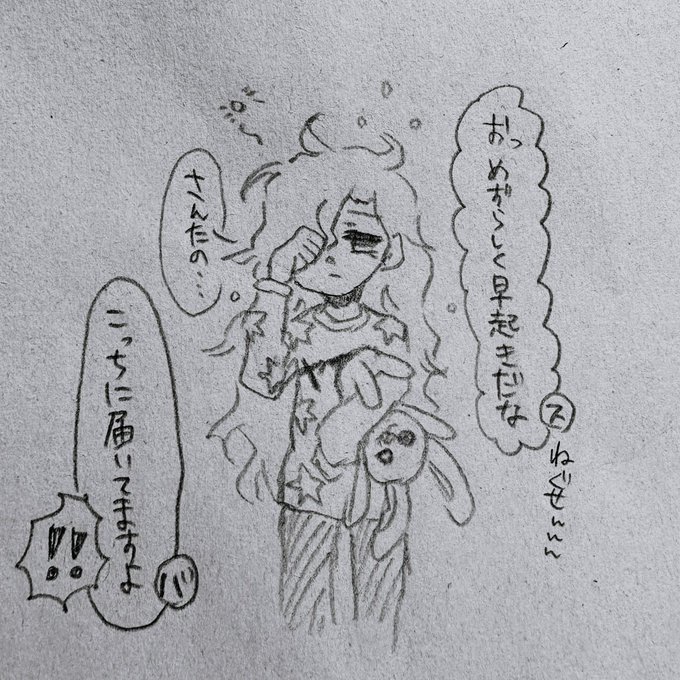 おっめずらしく早起きだな
ス
ねぐせんんん
さんたの…
こっちに届いてますよ
バ
!!